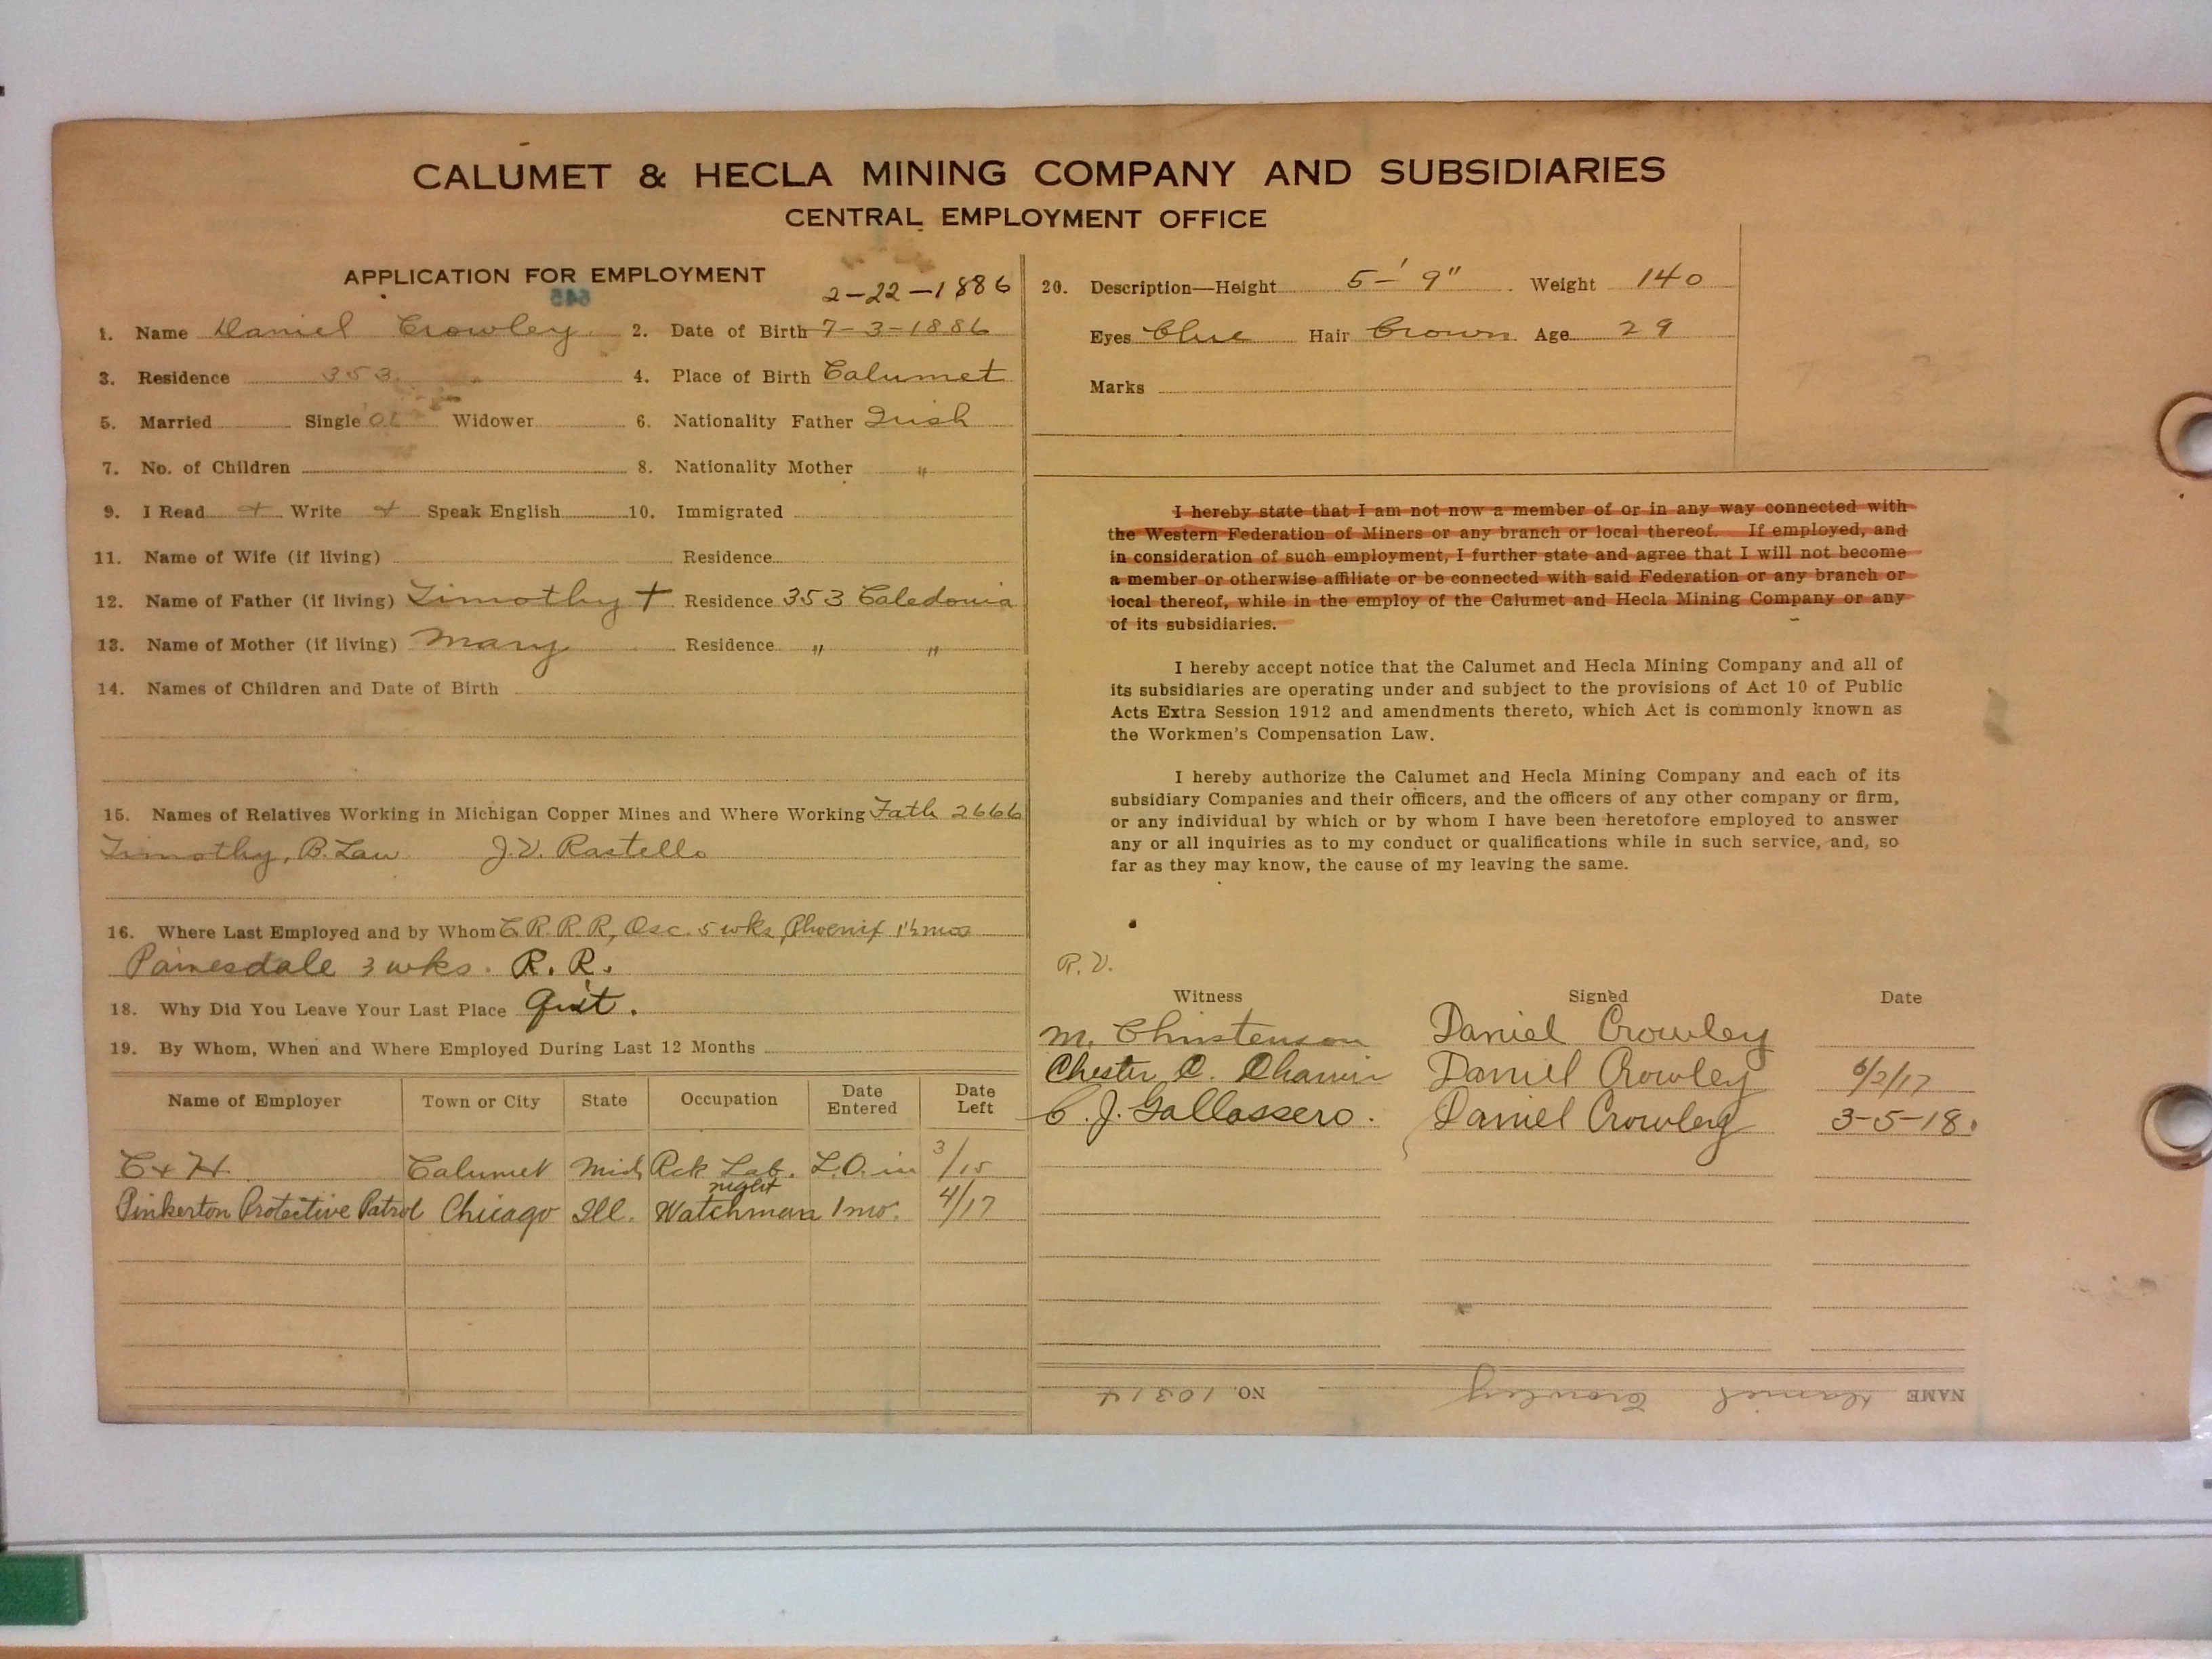 CALUMET & HECLA MINING COMPANY AND SUBSIDIARIES
CENTRAL EMPLOYMENT OFFICE
APPLICATION FOR EMPLOYMENT
2-22-1886
1. Name Daniel Crowley 2. Date of Birth 7-3-1886
3. Residence 353 4. Place of Birth Calumet
5. Married Single Widower 6. Nationality Father Irish
7. No. of Children 8. Nationality Mother "
9. I Read + Write + Speak English 10. Immigrated
11. Name of Wife (if living) Residence
12. Name of Father (if living) Timothy + Residence 353 Caledonia
13. Name of Mother (if living) Mary Residence " "
14. Names of Children and Date of Birth
15. Names of Relatives Working in Michigan Copper Mines and Where Working Fath 2666
Timothy, B. Law J.V. Rastello
16. Where Last Employed and by Whom C.R.R.R, Osc. 5 wks, Phoenix 1½ mos
Painesdale 3 wks. R. R.
18. Why Did You Leave Your Last Place Quit.
19. By Whom, When and Where Employed During Last 12 Months
Name of Employer Town or City State Occupation Date Entered Date Left
C + H Calumet Mich Rck Lab. L.O. in 3/15
Pinkerton Protective Patrol Chicago Ill. night Watchman 1 mo. 4/17
20. Description—Height 5-' 9" Weight 140
Eyes Blue Hair Brown Age 29
Marks
I hereby state that I am not now a member of or in any way connected with
the Western Federation of Miners or any branch or local thereof. If employed, and
in consideration of such employment, I further state and agree that I will not become
a member or otherwise affiliate or be connected with said Federation or any branch or
local thereof, while in the employ of the Calumet and Hecla Mining Company or any
of its subsidiaries.
I hereby accept notice that the Calumet and Hecla Mining Company and all of
its subsidiaries are operating under and subject to the provisions of Act 10 of Public
Acts Extra Session 1912 and amendments thereto, which Act is commonly known as
the Workmen's Compensation Law.
I hereby authorize the Calumet and Hecla Mining Company and each of its
subsidiary Companies and their officers, and the officers of any other company or firm,
or any individual by which or by whom I have been heretofore employed to answer
any or all inquiries as to my conduct or qualifications while in such service, and, so
far as they may know, the cause of my leaving the same.
R. V.
Witness Signed Date
M. Christenson Daniel Crowley
Chester O. Daniel Crowley 6/2/17
C. J. Gallassero. Daniel Crowley 3-5-18.
NAME Daniel Crowley NO. 10314